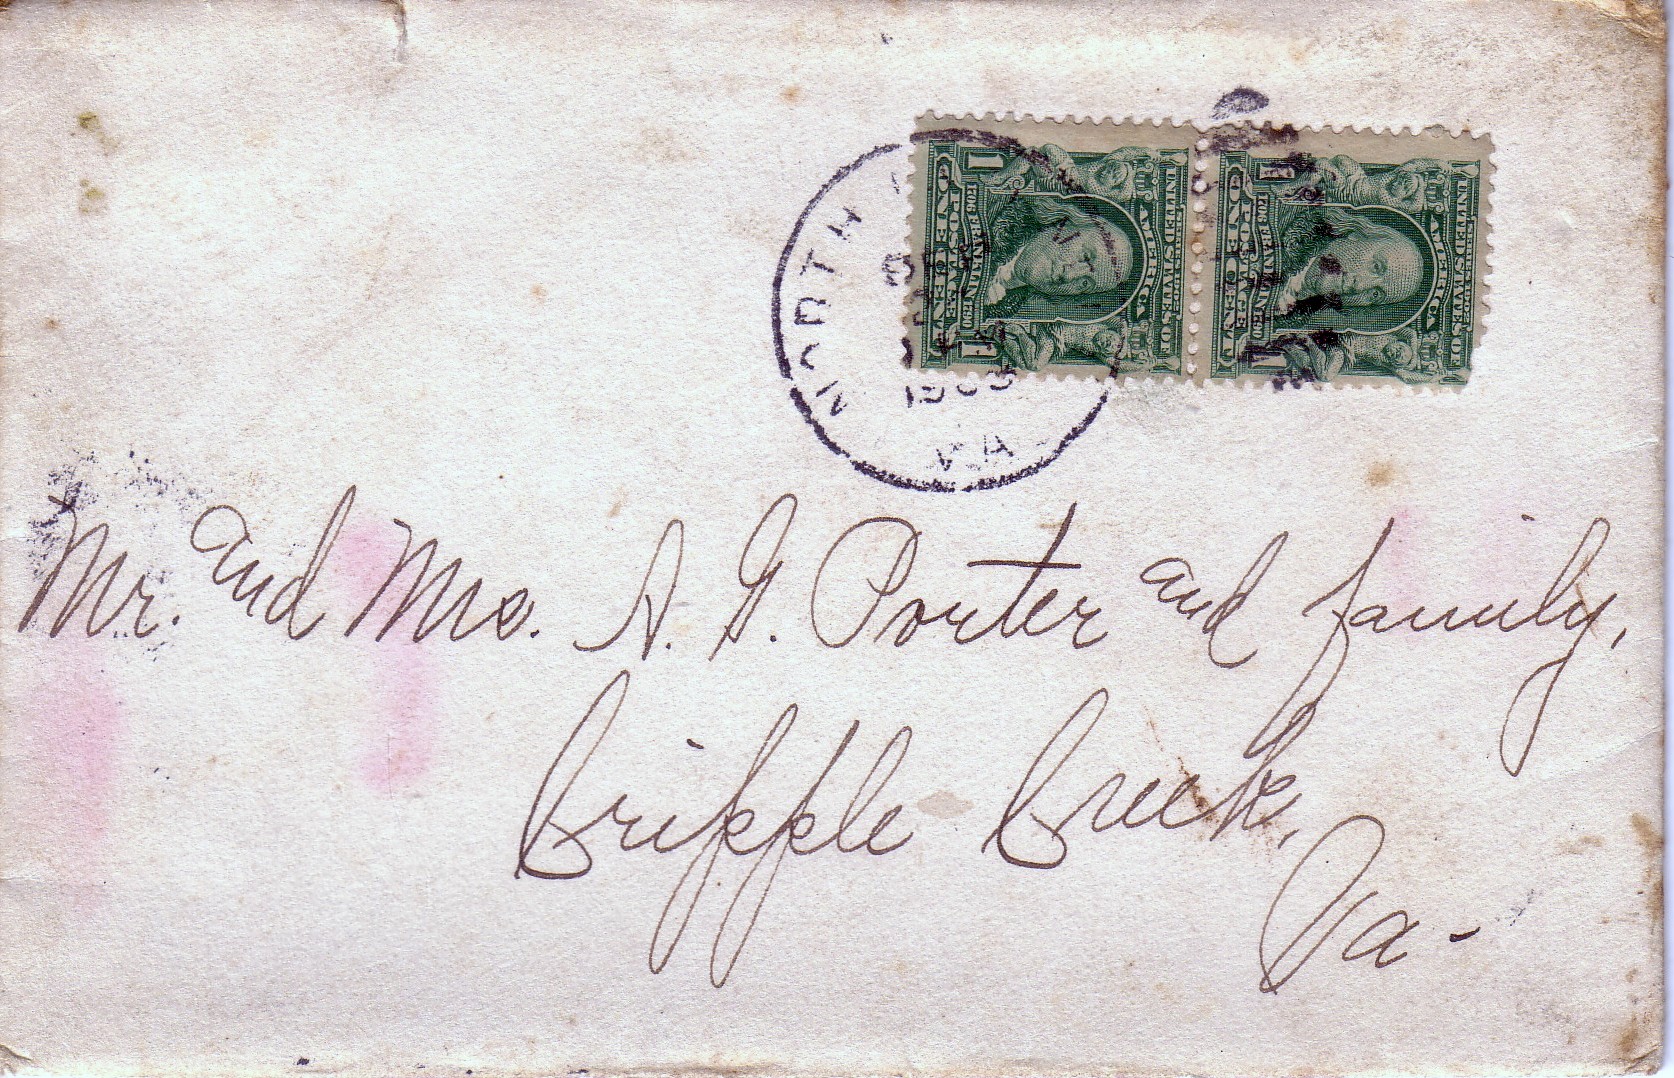 NORTH
1903
VA
UNITED STATES OF
AMERICA
1706 FRANKLIN 1790
POSTAGE
ONE CENT
1 1
UNITED STATES OF
AMERICA
1706 FRANKLIN 1790
POSTAGE
ONE CENT
1 1
Mr. and Mrs. A. G. Porter and family,
Cripple Creek,
Va-